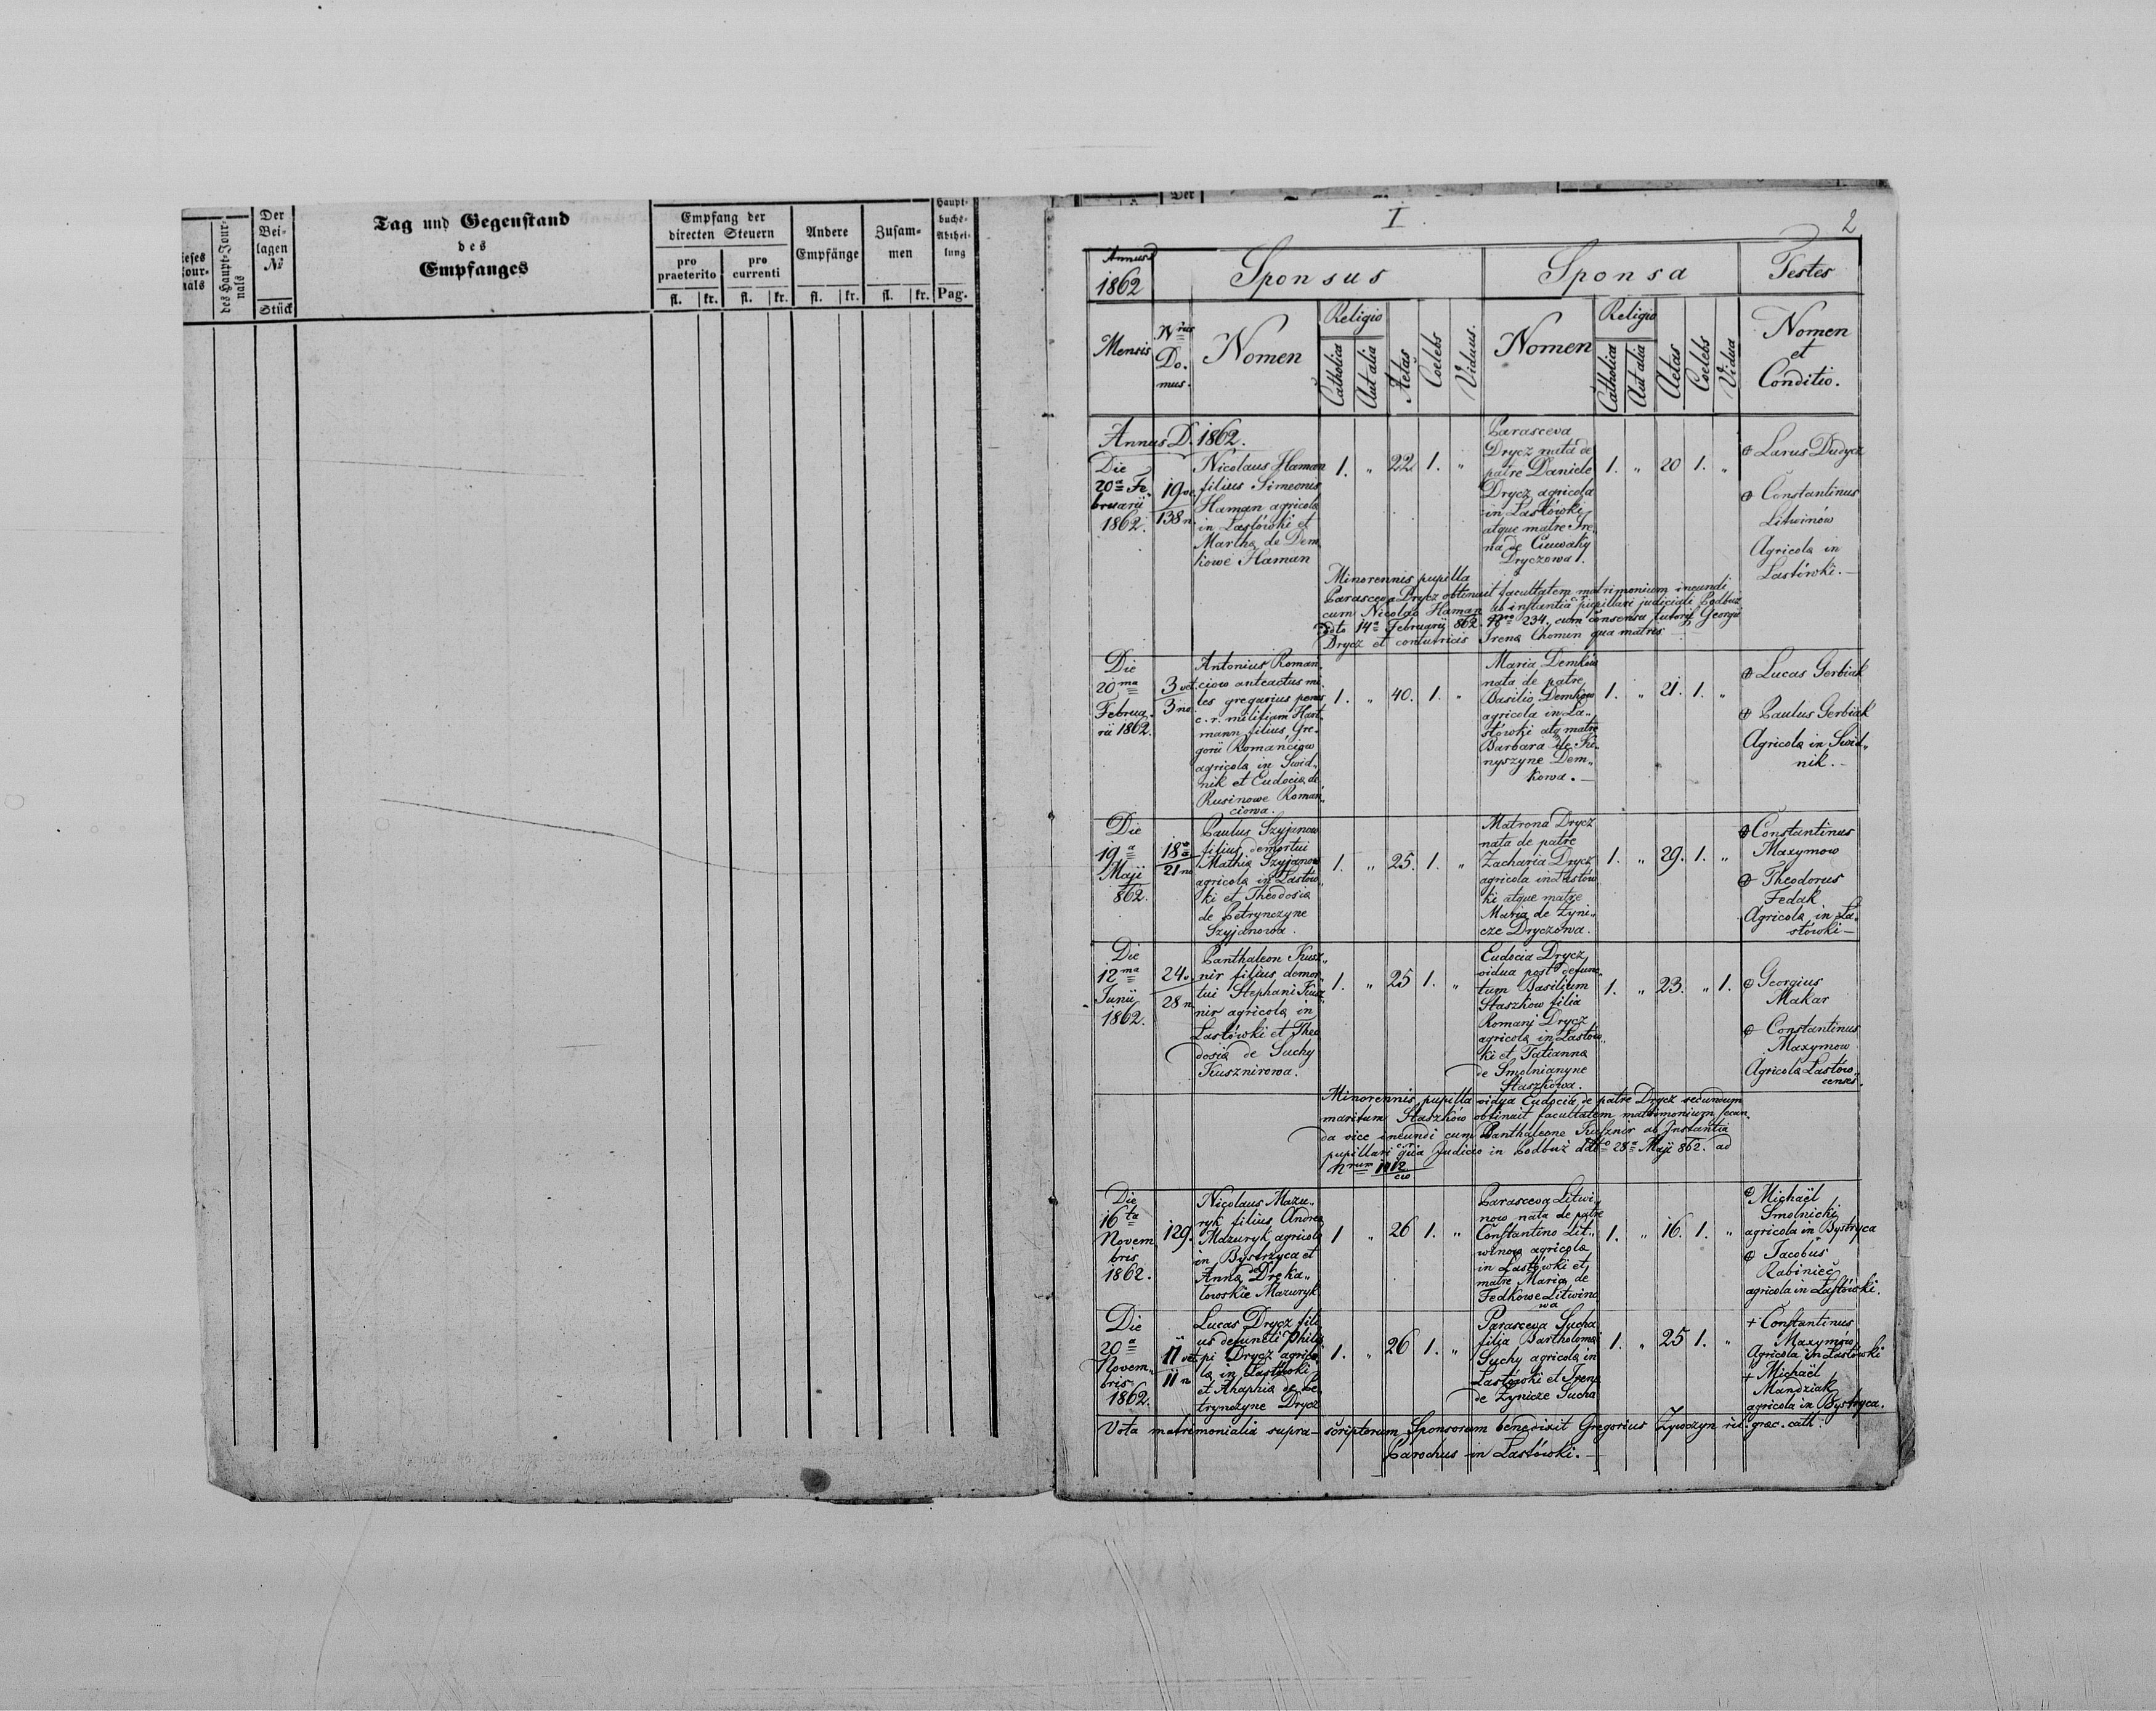 ieses
Jour-
nals
des Haupt-Jour-
nals
Der
Bei-
lagen
№
Stück
Tag und Gegenstand
des
Empfanges
Empfang der
directen Steuern
pro
praeterito
pro
currenti
Andere
Empfänge
Zusam-
men
Haupt-
buchs-
Abthei-
lung
fl. kr. fl. kr. fl. kr. fl. kr. Pag.
Der
I.
2
Annus
1862
Sponsus
Sponsa
Testes
Mensis
Nrus
Do-
mus.
Nomen
Religio
Catholica
Aut alia
Aetas
Coelebs
Viduus.
Nomen
Religio
Catholica
Aut alia
Aetas
Coelebs
Vidua
Nomen
et
Conditio.
Annus D. 1862.
Die
20a Fe-
bruarii
1862.
19 ve.
138 n.
Nicolaus Haman
filius Simeonis
Haman agricola
in Lastówki et
Martha de Dem
kowe Haman
1. " 22 1. "
Parasceva
Drycz nata de
patre Daniele
Drycz agricola
in Lastówki
atque matre Ire-
na de Ciuwaky
Dryczowa.
1. " 20 1. "
⊕ Larus Dudycz
⊕ Constantinus
Litwinów
Agricola in
Lastówki.
Minorennis pupilla
Parasceva Drycz obtinuit facultatem matrimonium ineundi
cum Nicolao Haman ab instantia c.r. pupillari judiciali Podbuż
ddto 14a Februarij 862. Nro 234. cum consensu tutoris Georgii
Drycz et contutricis Irena Chomin qua matris
Die
20ma
Februa-
rii 1862.
3 vet.
3 no.
Antonius Roman
ciow anteactus mi
les gregarius penes
c. r. militiam Hart-
mann filius Gre-
gorii Romanciow
agricola in Swid-
nik et Eudocia de
Rusinowe Roman
ciowa.
1. " 40. 1. "
Maria Demków
nata de patre
Basilio Demkow
agricola in La-
stówki atq matre
Barbara de Ki-
nyszyne Dem-
kowa.
1. " 21. 1. "
⊕ Lucas Gerbiak
⊕ Paulus Gerbiak
Agricola in Swid-
nik.
Die
19a
Maji
862.
18 a
21 no
Paulus Szyjanow
filius demortui
Mathia Szyjanow
agricola in Lastów-
ki et Theodosia
de Petrynczyne
Szyjanowa.
1. " 25. 1. "
Matrona Drycz
nata de patre
Zacharia Drycz
agricola in Lastów
ki atque matre
Maria de Zyni-
cze Dryczowa.
1. " 29. 1. "
⊕ Constantinus
Maxymow
⊕ Theodorus
Fedak
Agricola in La-
stówki
Die
12ma
Junii
1862.
24 v.
28 n
Panthaleon Kusz-
nir filius demor
tui Stephani Kusz
nir agricola in
Lastówki et Theo
dosia de Suchy
Kusznirowa.
1. " 25 1. "
Eudocia Drycz
vidua post defunc-
tum Basilium
Staszkow filia
Romani Drycz
agricola in Lastów
ki et Tatianna
de Smolnianyne
Staszkowa.
1. " 23. " 1.
⊕ Georgius
Makar
⊕ Constantinus
Maxymow
Agricola Lastów-
censes.
Minorennis pupilla vidua Eudocia de patre Drycz secundum
maritum Staszków obtinuit facultatem matrimonium secun-
da vice ineundi cum Panthaleone Kusznir ab Instantia
pupillari qua c.r. Judicio in Podbuż ddto 28a Maji 862. ad
Nrum 1012
civ
Die
16ta
Novem
bris
1862.
129.
Nicolaus Mazu-
ryk filius Andrea
Mazuryk agricola
in Bystrzyca et
Anna de Dreka-
lowskie Mazuryk
1 " 26 1. "
Parasceva Litwi
now nata de patre
Constantino Lit-
winow agricola
in Lastówki et
matre Maria de
Fedkowe Litwino
wa
1. " 16. 1. "
⊕ Michaël
Smolnicki
agricola in Bystryca
⊕ Jacobus
Rabiniec
agricola in Lastówki.
Die
20a
Novem-
bris
1862.
11 vet
11 n
Lucas Drycz fili
us defuncti Philip
pi Drycz agrico
la in Lastówki
et Ahaphia de Pe
trynczyne Drycz
1. " 26 1. "
Parasceva Sucha
filia Bartholomaei
Suchy agricola in
Lastówki et Irena
de Zynicze Sucha
1. " 25 1. "
+ Constantinus
Maxymów
Agricola in Lastówki
+ Michaël
Mandziak
agricola in Bystryca.
Vota matrimonialia supra-scriptorum Sponsorum benedixit Gregorius Zywczyn rit. graec. cath.
Parochus in Lastówki.